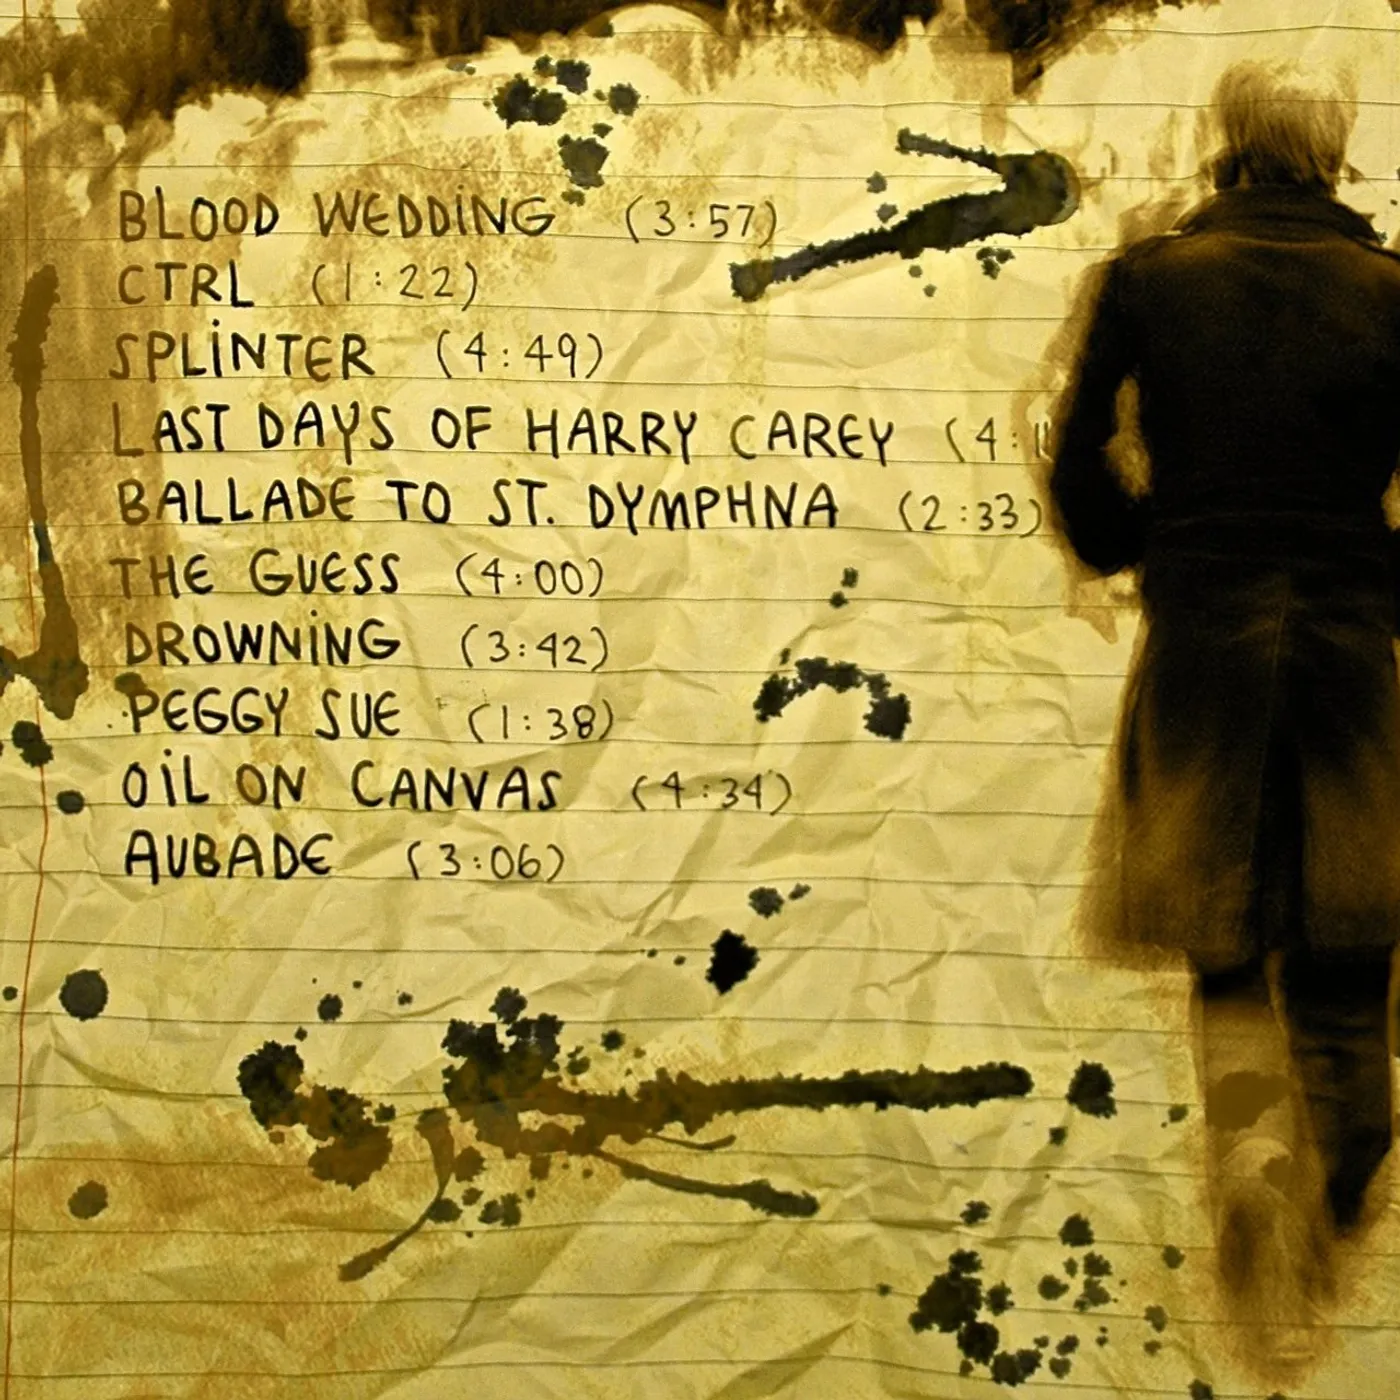 BLOOD WEDDING (3:57)
CTRL (1:22)
SPLINTER (4:49)
LAST DAYS OF HARRY CAREY (4:11
BALLADE TO ST. DYMPHNA (2:33)
THE GUESS (4:00)
DROWNING (3:42)
PEGGY SUE (1:38)
OIL ON CANVAS (4:34)
AUBADE (3:06)